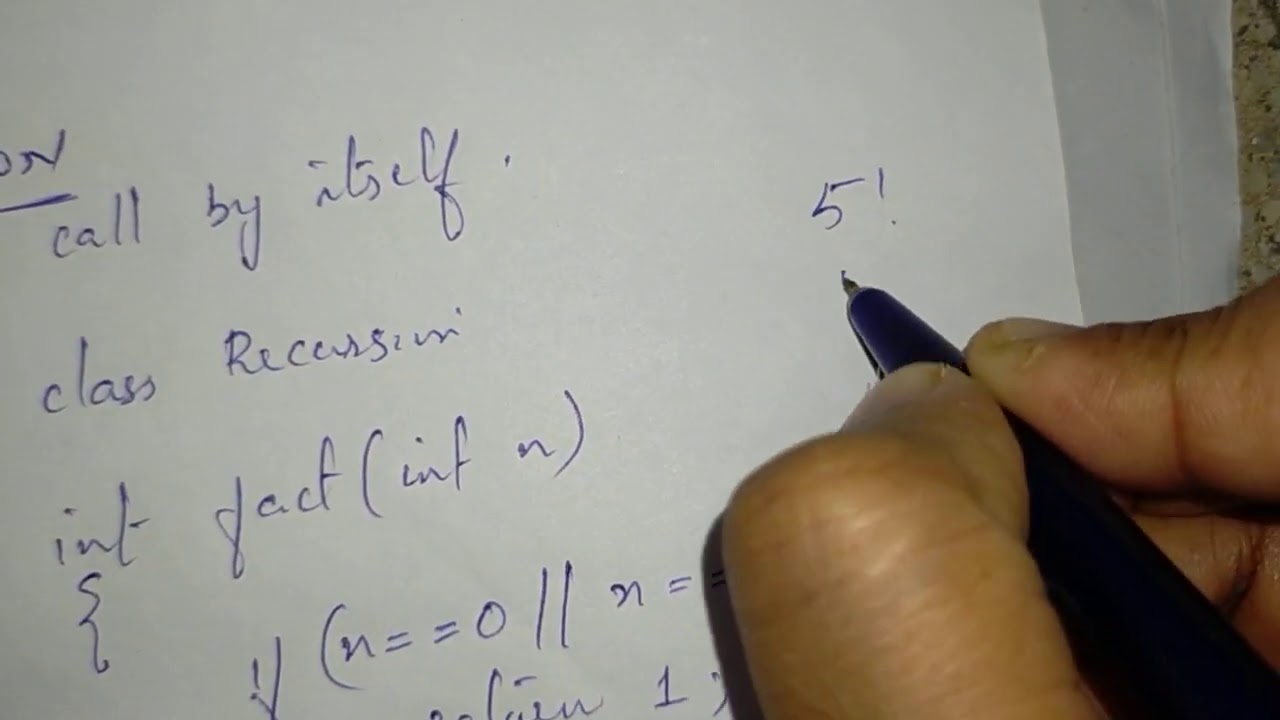 call by itself.
5!
class Recursion
int fact(int n)
{
if (n==0 || n=
return 1;